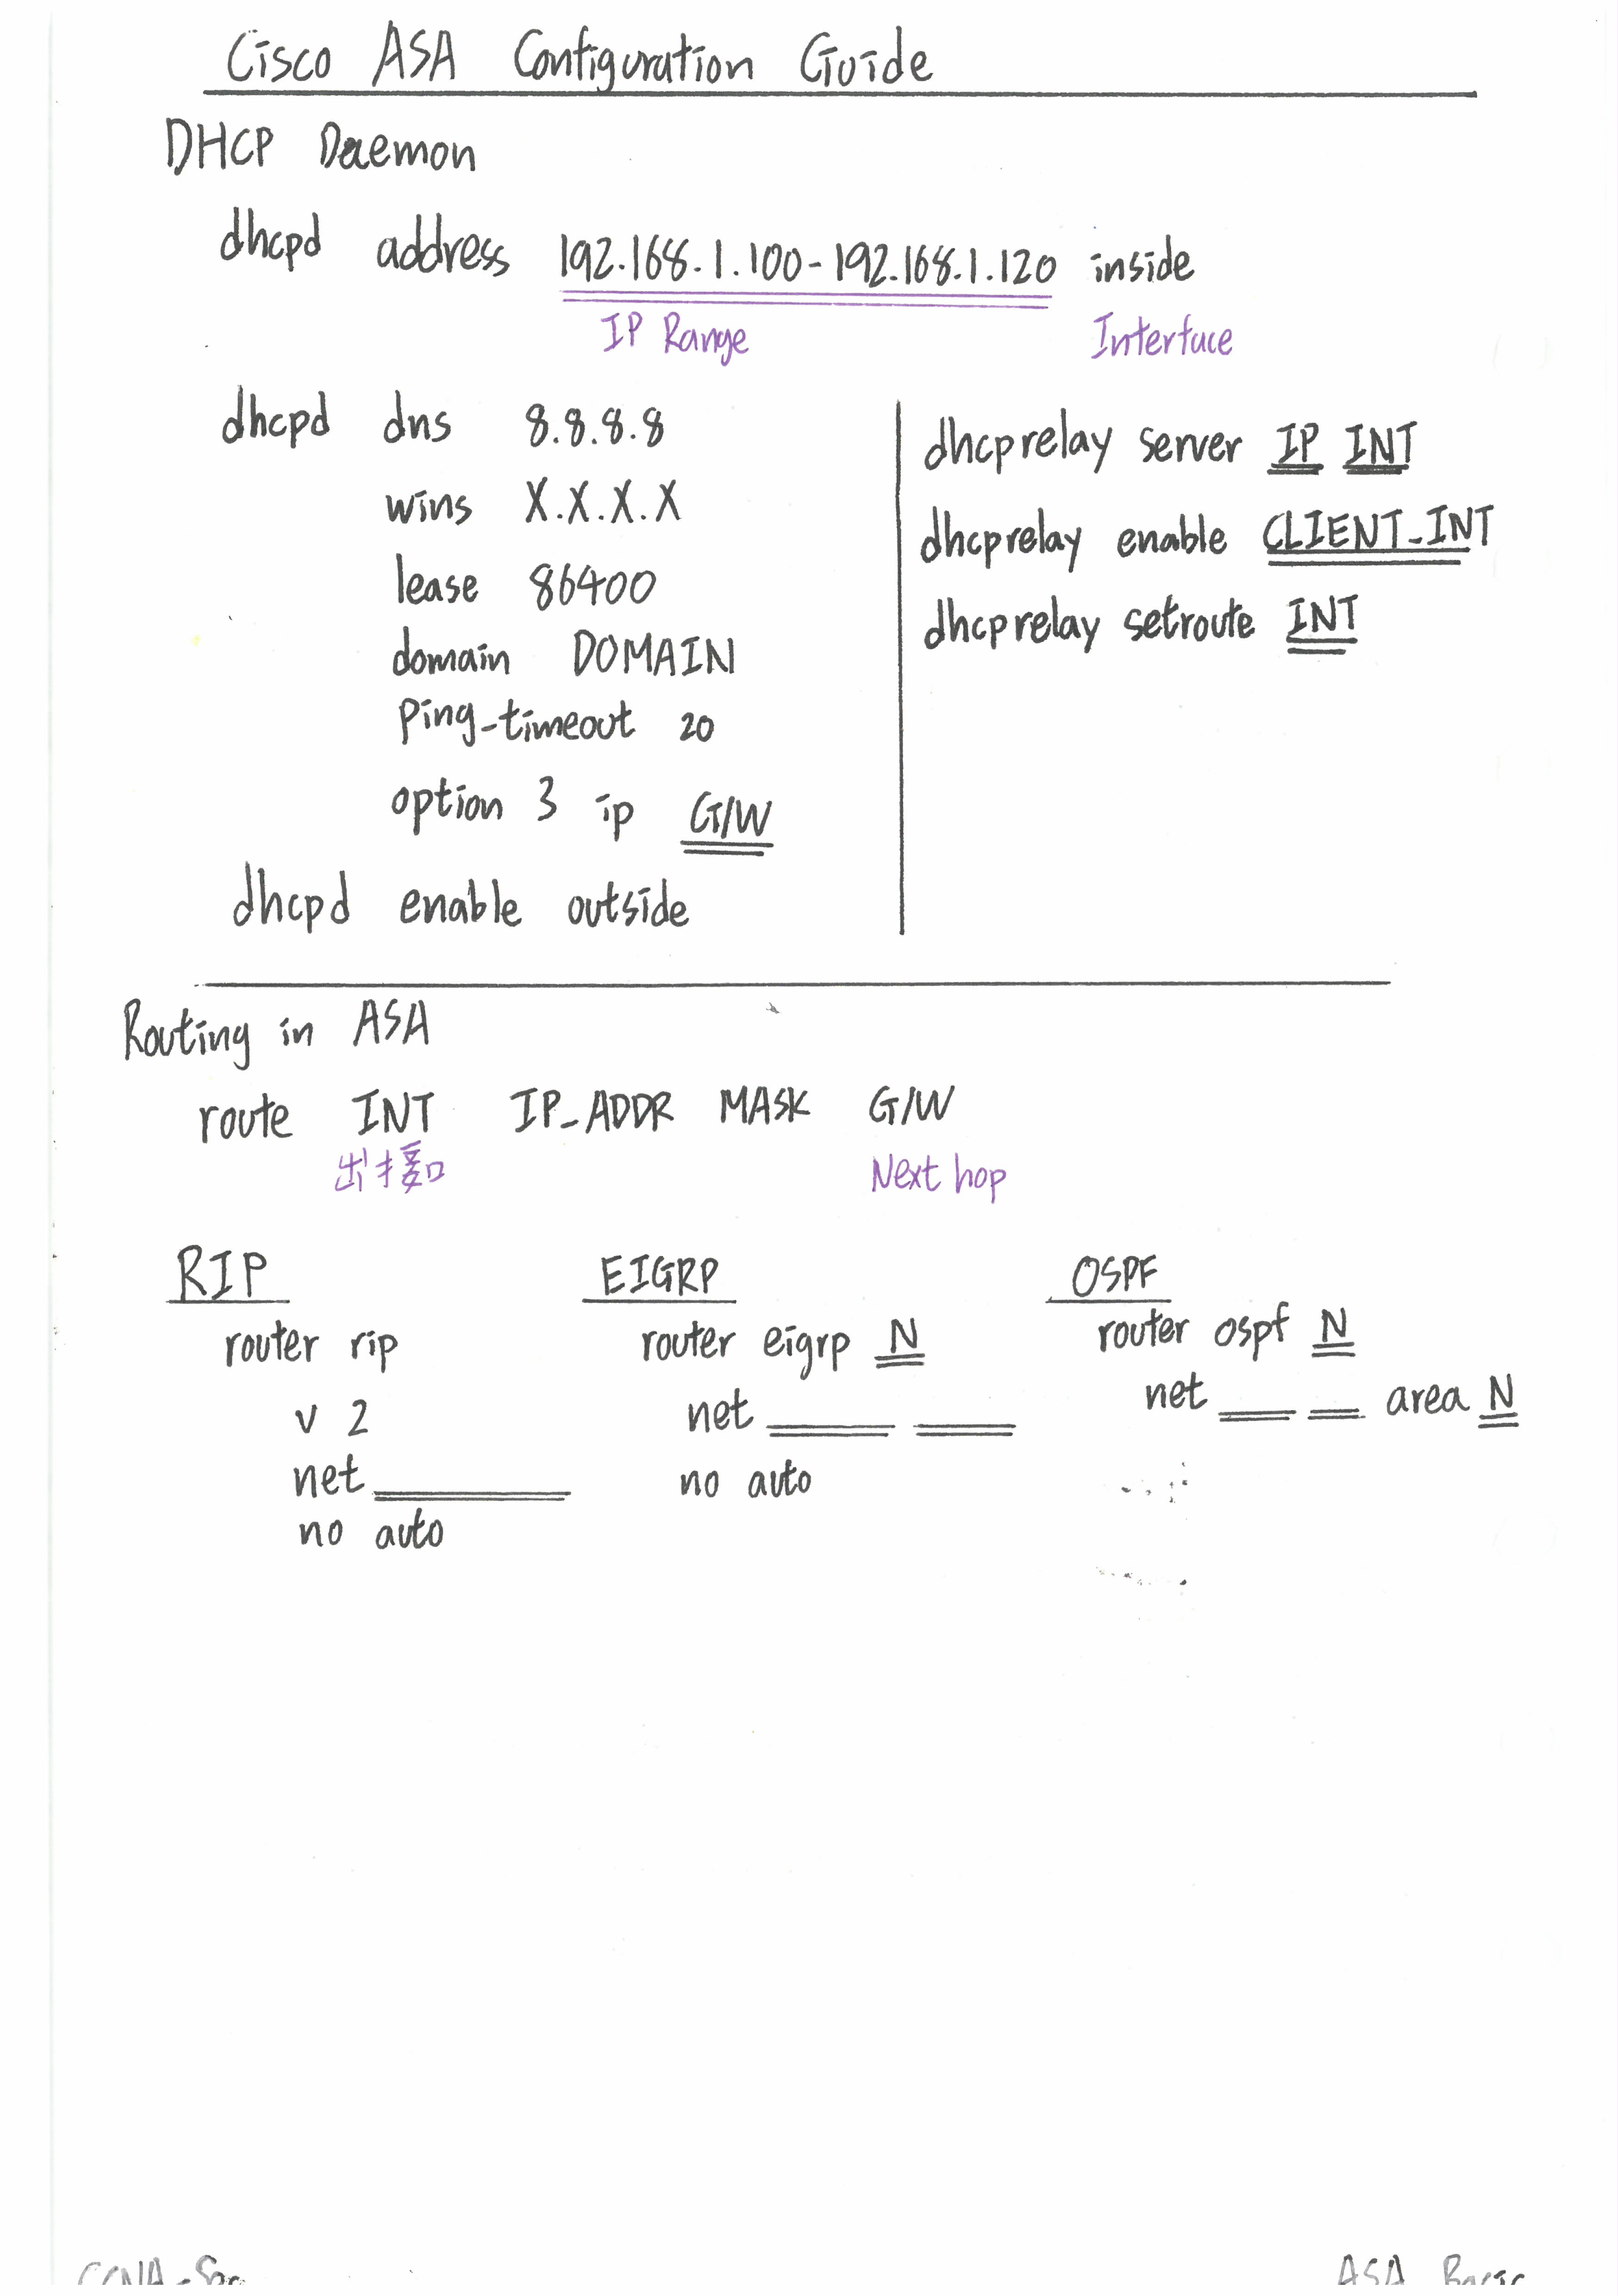 Cisco ASA Configuration Guide
DHCP Daemon
dhcpd address 192.168.1.100-192.168.1.120 inside
IP Range Interface
dhcpd dns 8.8.8.8
wins X.X.X.X
lease 86400
domain DOMAIN
Ping-timeout 20
option 3 ip G/W
dhcpd enable outside
dhcprelay server IP INT
dhcprelay enable CLIENT_INT
dhcprelay setroute INT
Routing in ASA
route INT IP_ADDR MASK G/W
出接口 Next hop
RIP
router rip
v 2
net
no auto
EIGRP
router eigrp N
net
no auto
OSPF
router ospf N
net area N
CCNA-Sec
ASA Basic